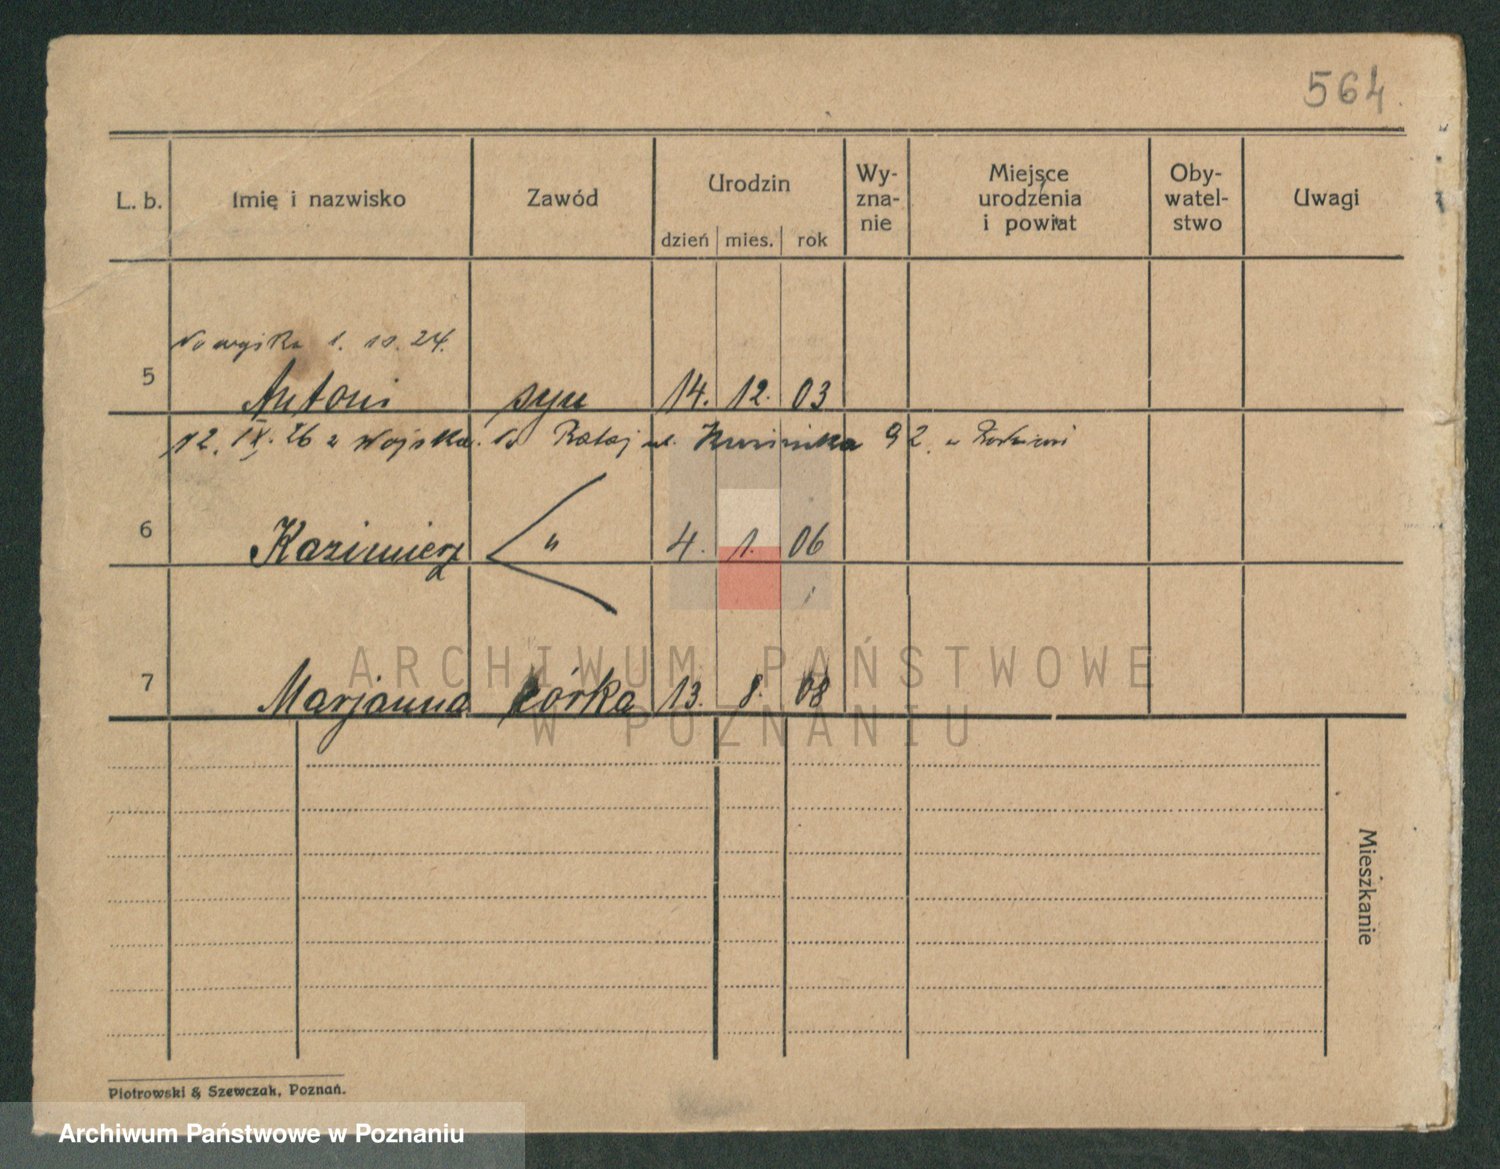 564
L. b. Imię i nazwisko Zawód Urodzin Wy-zna-nie Miejsce urodzenia i powiat Oby-watel-stwo Uwagi
dzień mies. rok
1. 10. 24.
5 Antoni syn 14. 12. 03
12. IX. 26 z Wojska. Rataj ul. 92. u
6 Kazimierz " 4. 1. 06
7 Marjanna córka 13. 8. 08
Mieszkanie
Piotrowski & Szewczak, Poznań.
ARCHIWUM PAŃSTWOWE
W POZNANIU
Archiwum Państwowe w Poznaniu